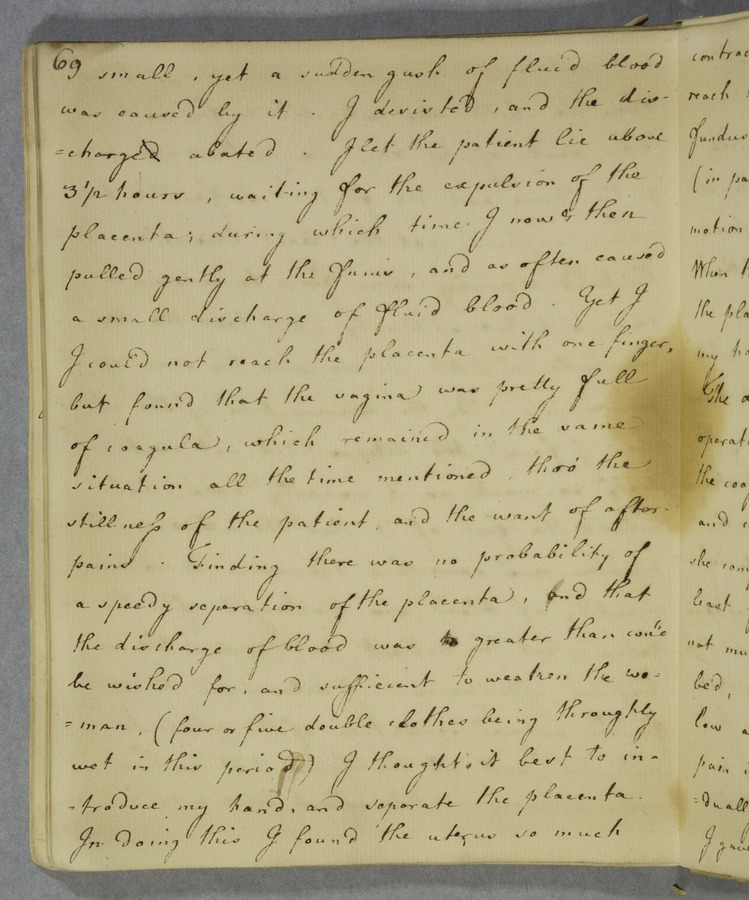 69
small, yet a sudden gush of fluid blood
was caused by it. I desisted, and the dis-
=charged abated. I let the patient lie above
3 1/2 hours, waiting for the expulsion of the
placenta; during which time I now & then
pulled gently at the funis, and as often caused
a small discharge of fluid blood. Yet I
I could not reach the placenta with one finger,
but found that the vagina was pretty full
of coagula, which remained in the same
situation all the time mentioned, thro' the
stillness of the patient and the want of after-
pains. Finding there was no probability of
a speedy separation of the placenta, and that
the discharge of blood was greater than could
be wished for, and sufficient to weaken the wo-
=man, (four or five double clothes being throughly
wet in this period) I thought it best to in-
-troduce my hand, and seperate the placenta.
In doing this I found the uterus so much
contrac
reach
fundus
(in pa
motion
When
the pla
my ha
The
operati
the coa
and
she com
least
not mu
bed,
low a
pain
=duall
I gave